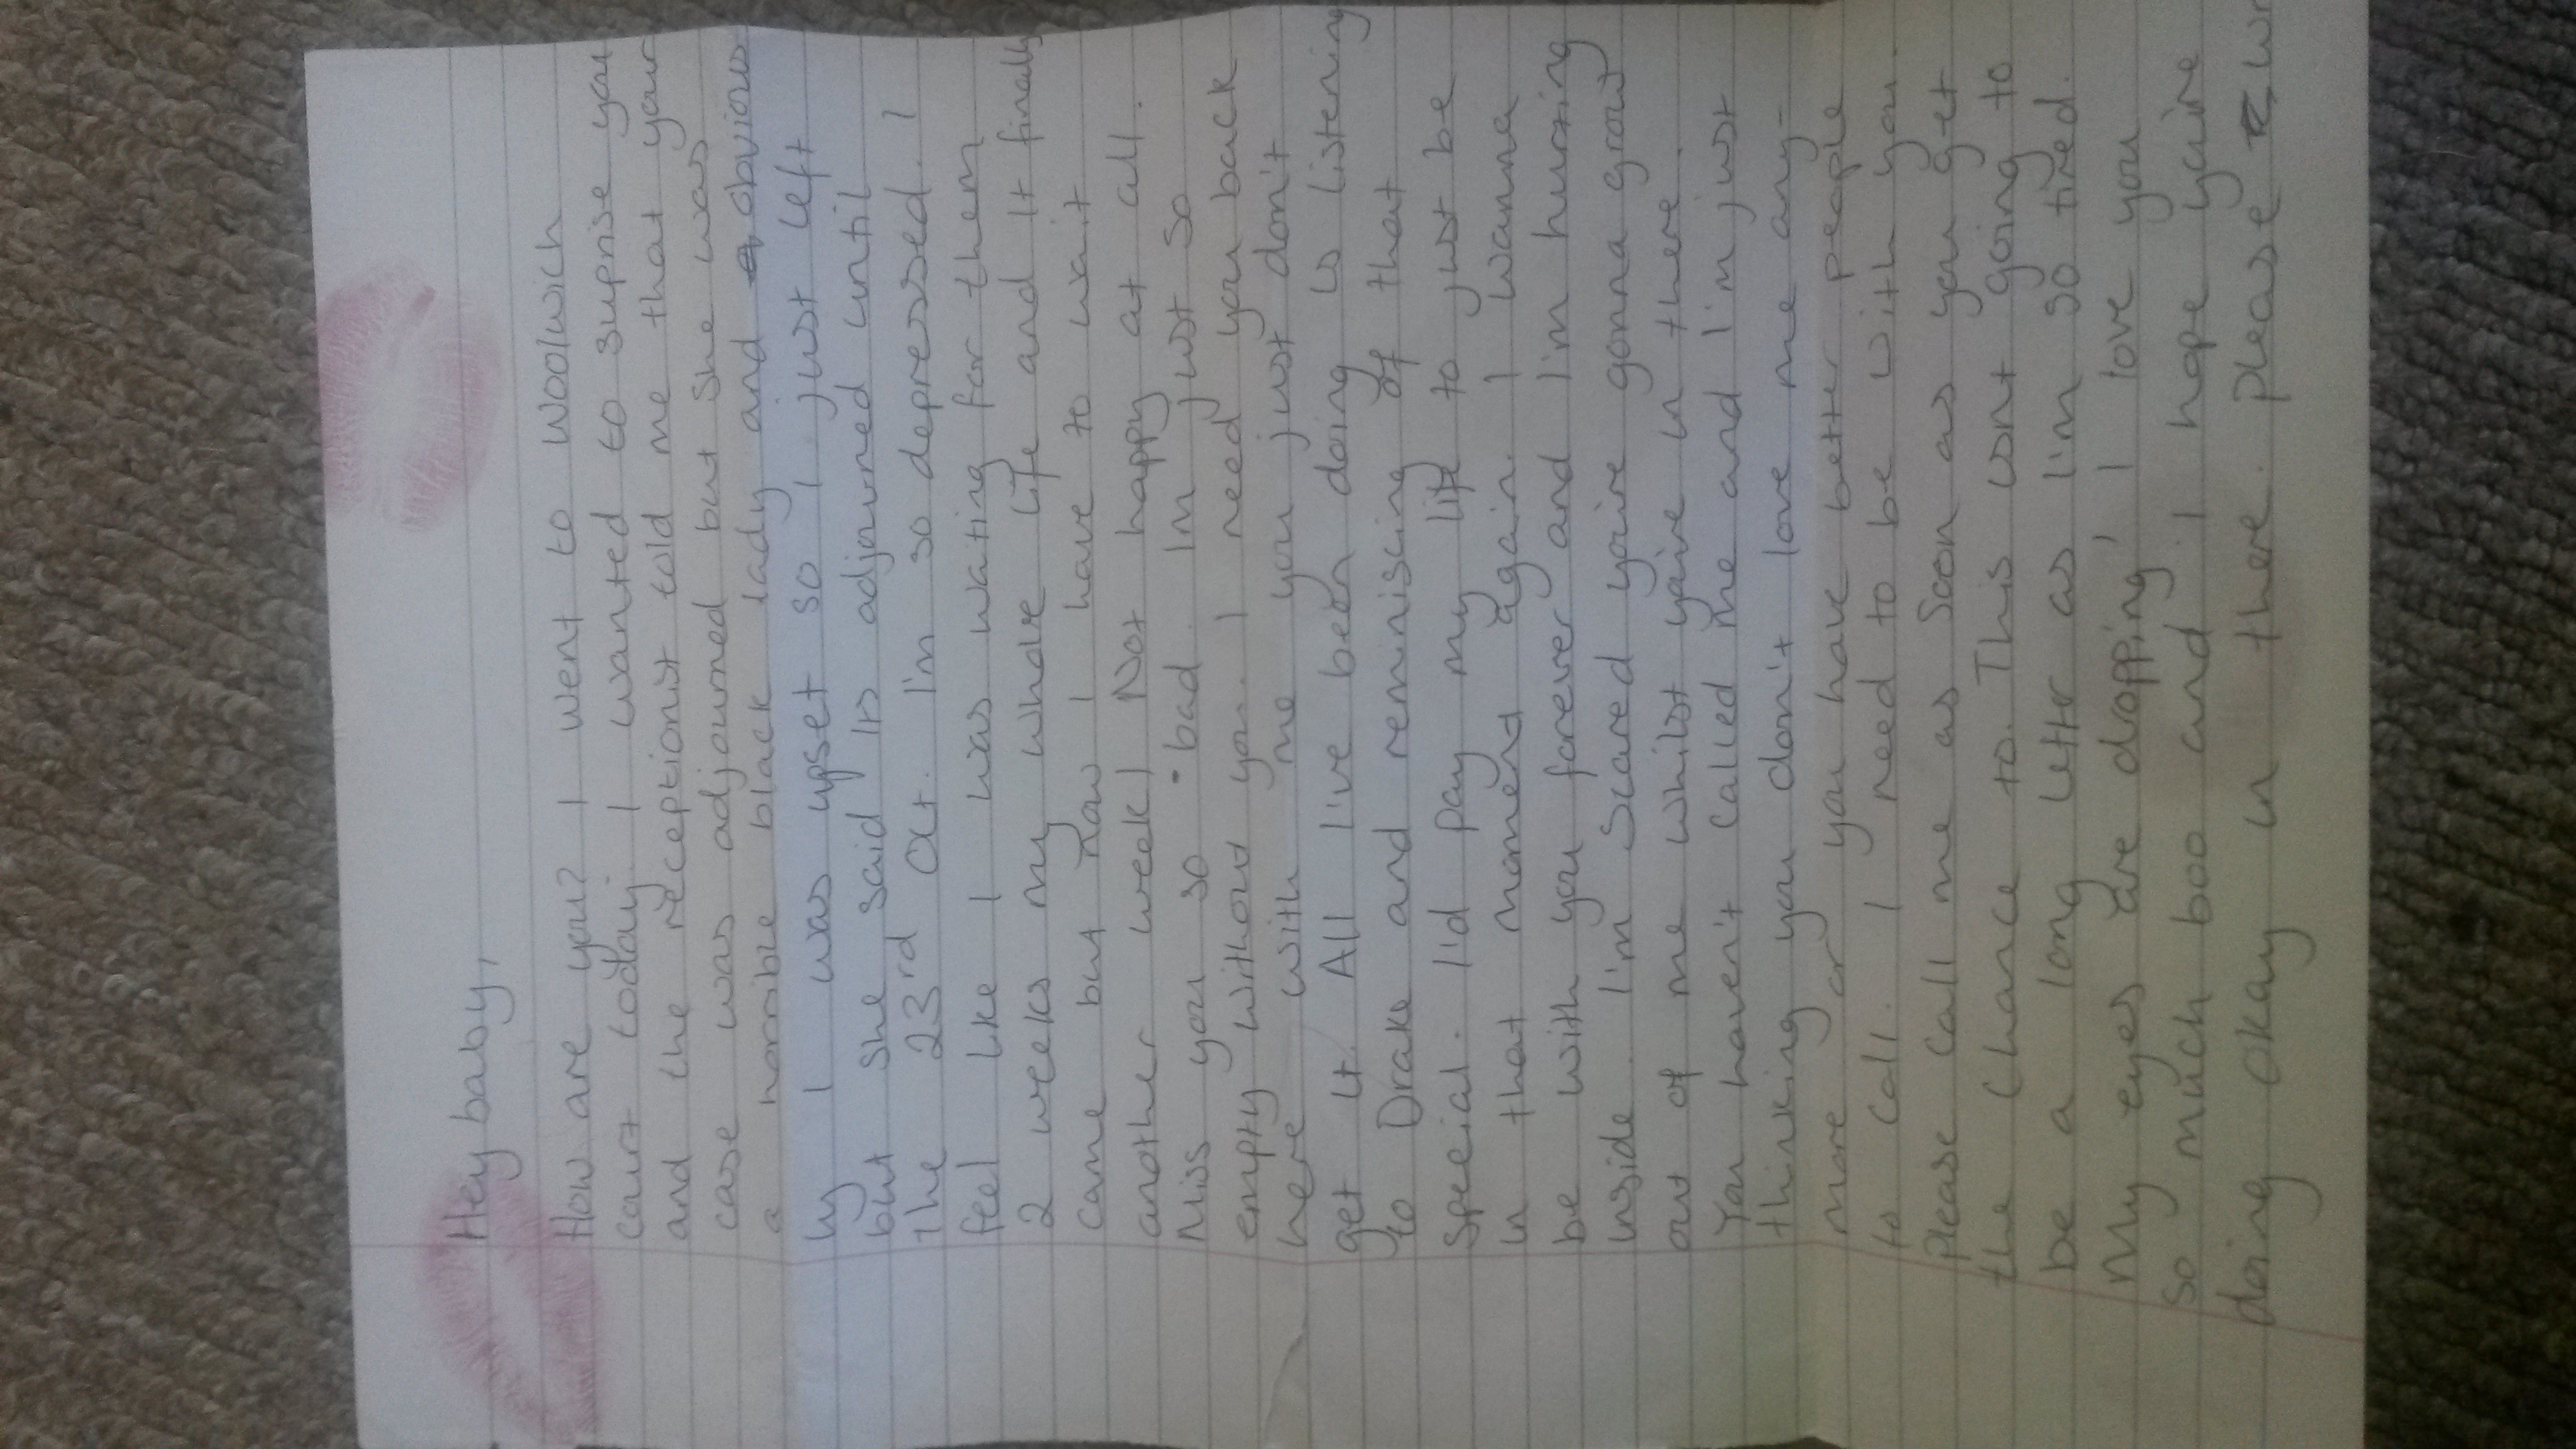 Hey baby,
How are you? I went to Woolwich
court today. I wanted to suprise you
and the receptionist told me that your
case was adjourned but she was
a horrible black lady and obvious
ly I was upset so I just left
but she said its adjourned until
the 23rd Oct. I'm so depressed. I
feel like I was waiting for them
2 weeks my whole life and it finally
came but now I have to wait
another week! Not happy at all.
Miss you so bad. I'm just so
empty without you. I need you back
here with me you just don't
get it. All I've been doing is listening
to Drake and reminiscing of that
special. I'd pay my life to just be
in that moment again. I wanna
be with you forever and I'm hurting
inside. I'm scared you're gonna grow
out of me whilst you're in there.
You haven't called me and I'm just
thinking you don't love me any-
more or you have better people
to call. I need to be with you.
Please call me as soon as you get
the chance to. This wont going to
be a long letter as I'm so tired.
My eyes are dropping, I love you
so much boo and I hope you're
doing okay in there. please wr